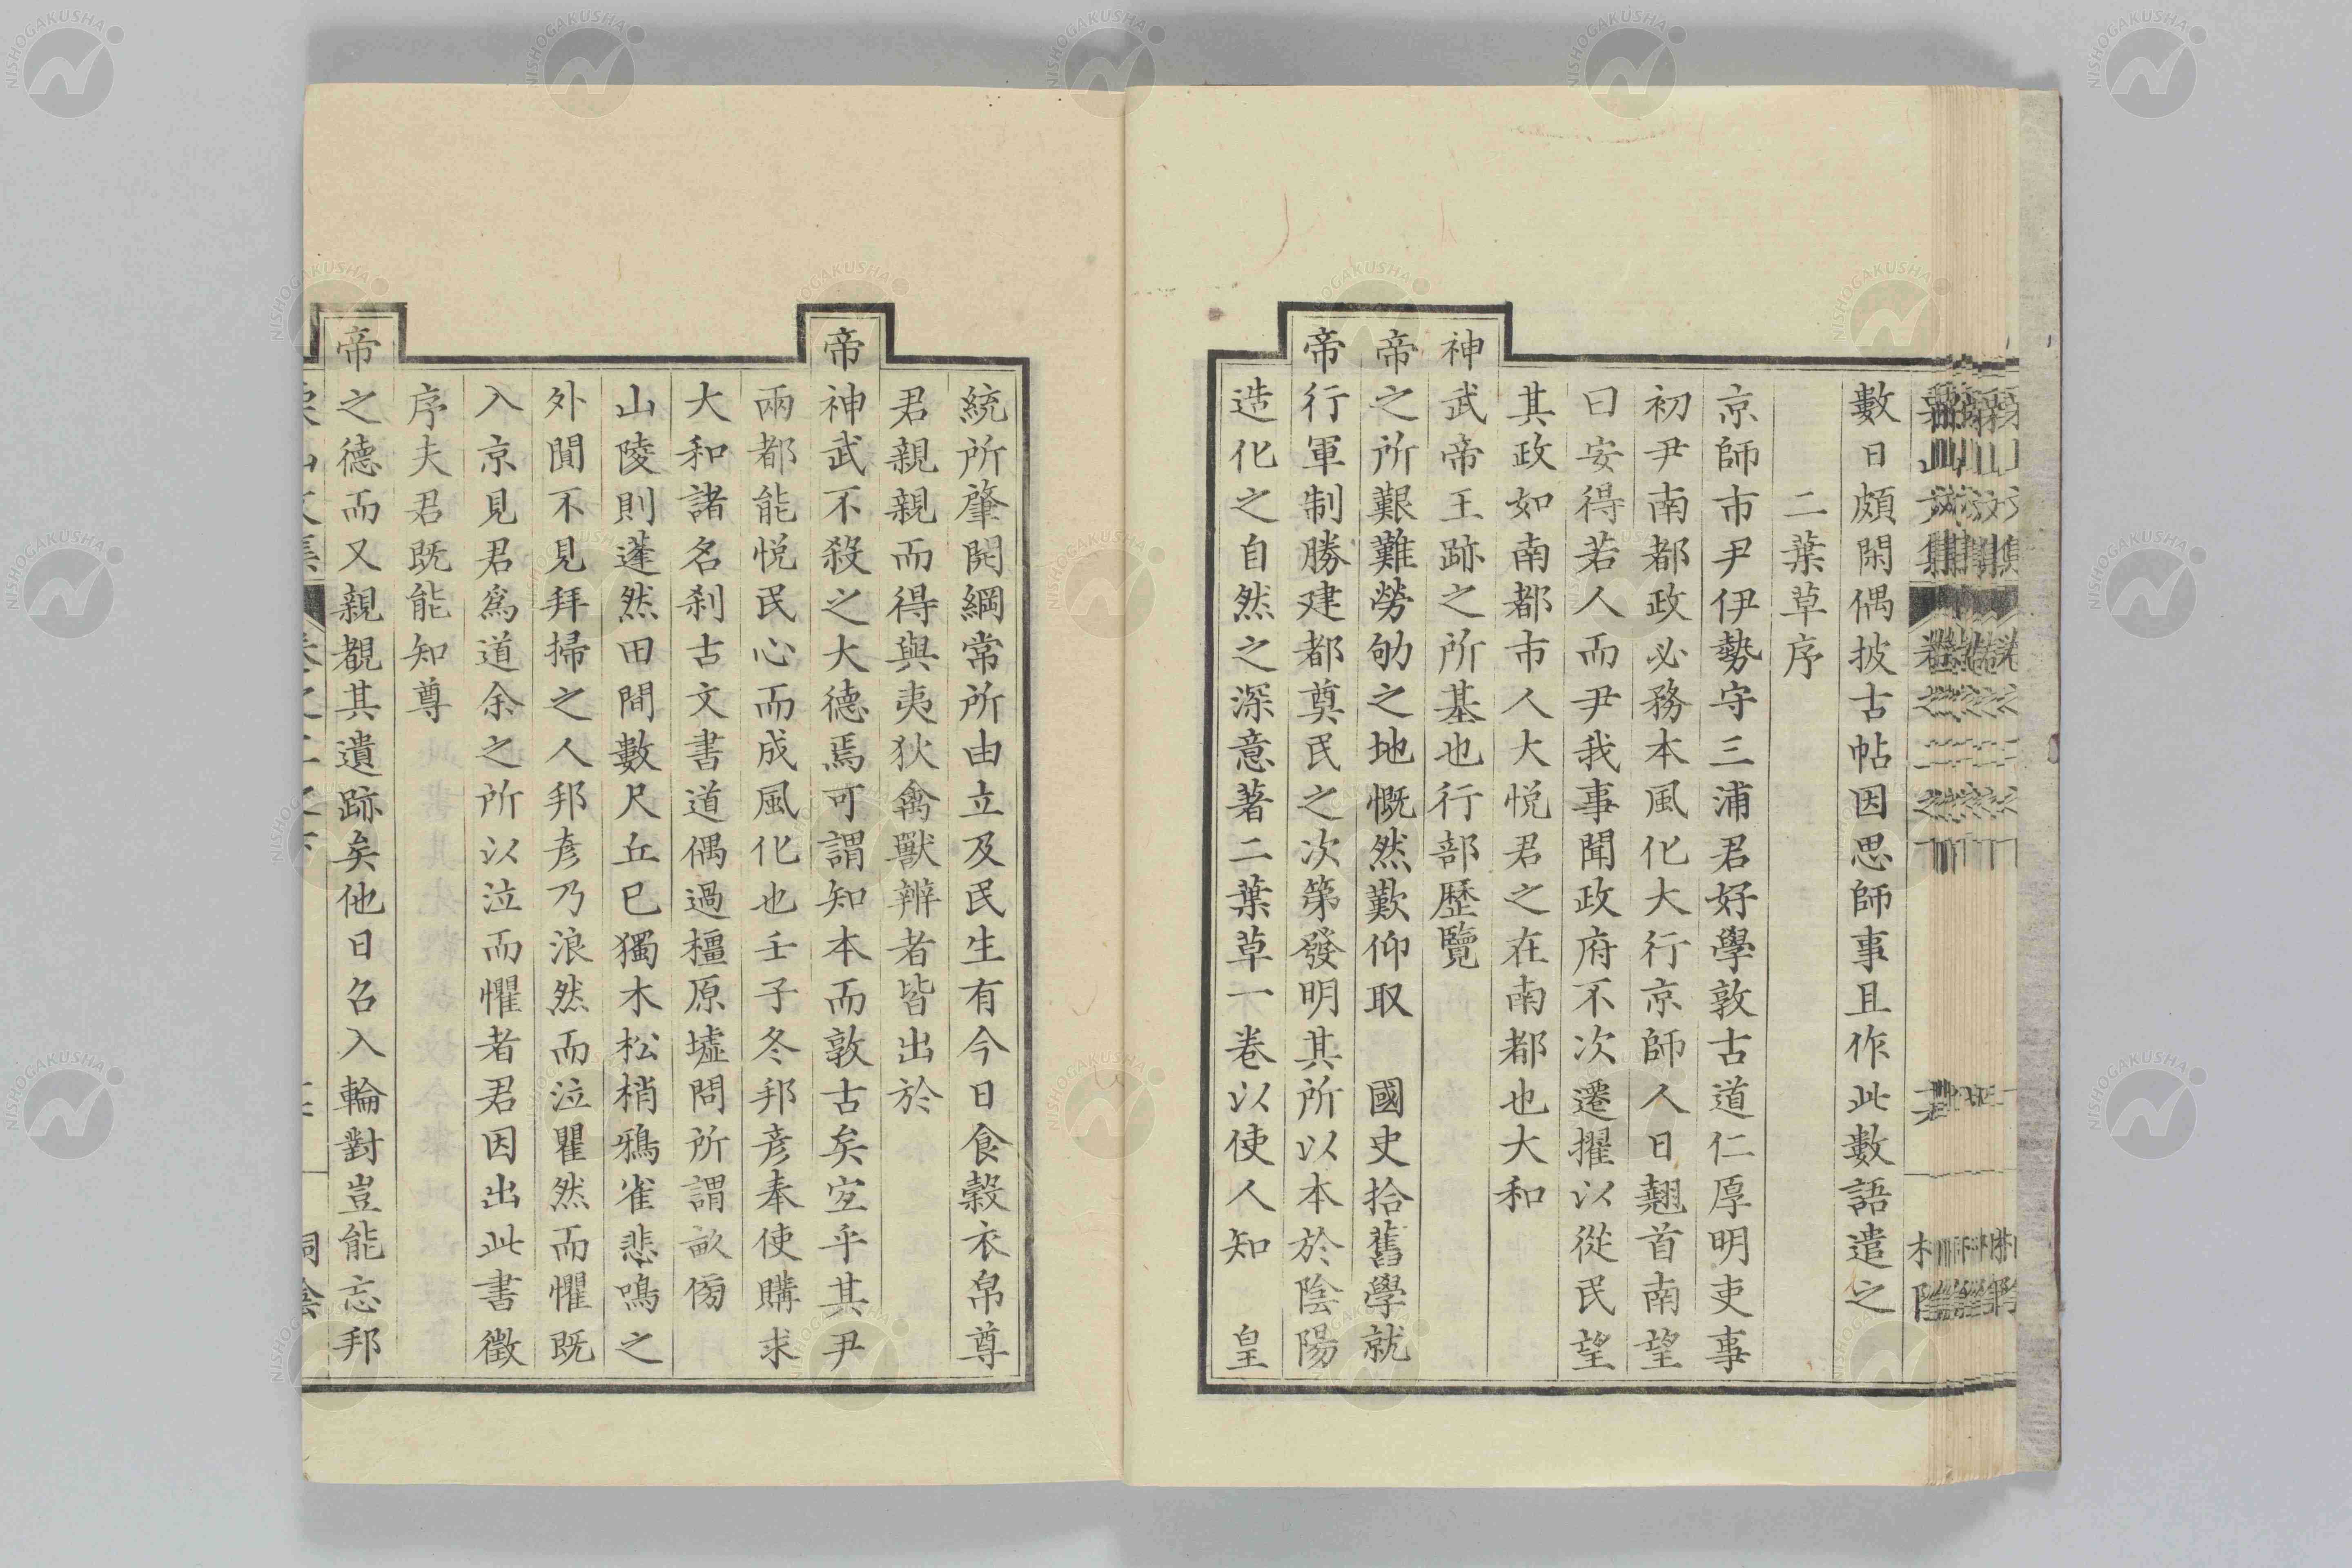 數日頗閑偶披古帖因思師事且作此數語遣之
二葉草序
京師市尹伊勢守三浦君好學敦古道仁厚明吏事
初尹南都政必務本風化大行京師人日翹首南望
曰安得若人而尹我事聞政府不次遷擢以從民望
其政如南都市人大悅君之在南都也大和
神武帝王跡之所基也行部歷覽
帝之所艱難勞劬之地慨然歎仰取 國史拾舊學就
帝行軍制勝建都奠民之次第發明其所以本於陰陽
造化之自然之深意著二葉草一卷以使人知 皇
統所肇開綱常所由立及民生有今日食穀衣帛尊
君親親而得與夷狄禽獸辨者皆出於
帝神武不殺之大德焉可謂知本而敦古矣宜乎其尹
兩都能悅民心而成風化也壬子冬邦彥奉使購求
大和諸名刹古文書道偶過橿原墟問所謂畝傍
山陵則蓬然田間數尺丘已獨木松梢鴉雀悲鳴之
外聞不見拜掃之人邦彥乃浪然而泣瞿然而懼既
入京見君爲道余之所以泣而懼者君因出此書徵
序夫君既能知尊
帝之德而又親覩其遺跡矣他日召入輪對豈能忘邦
NISHOGAKUSHA